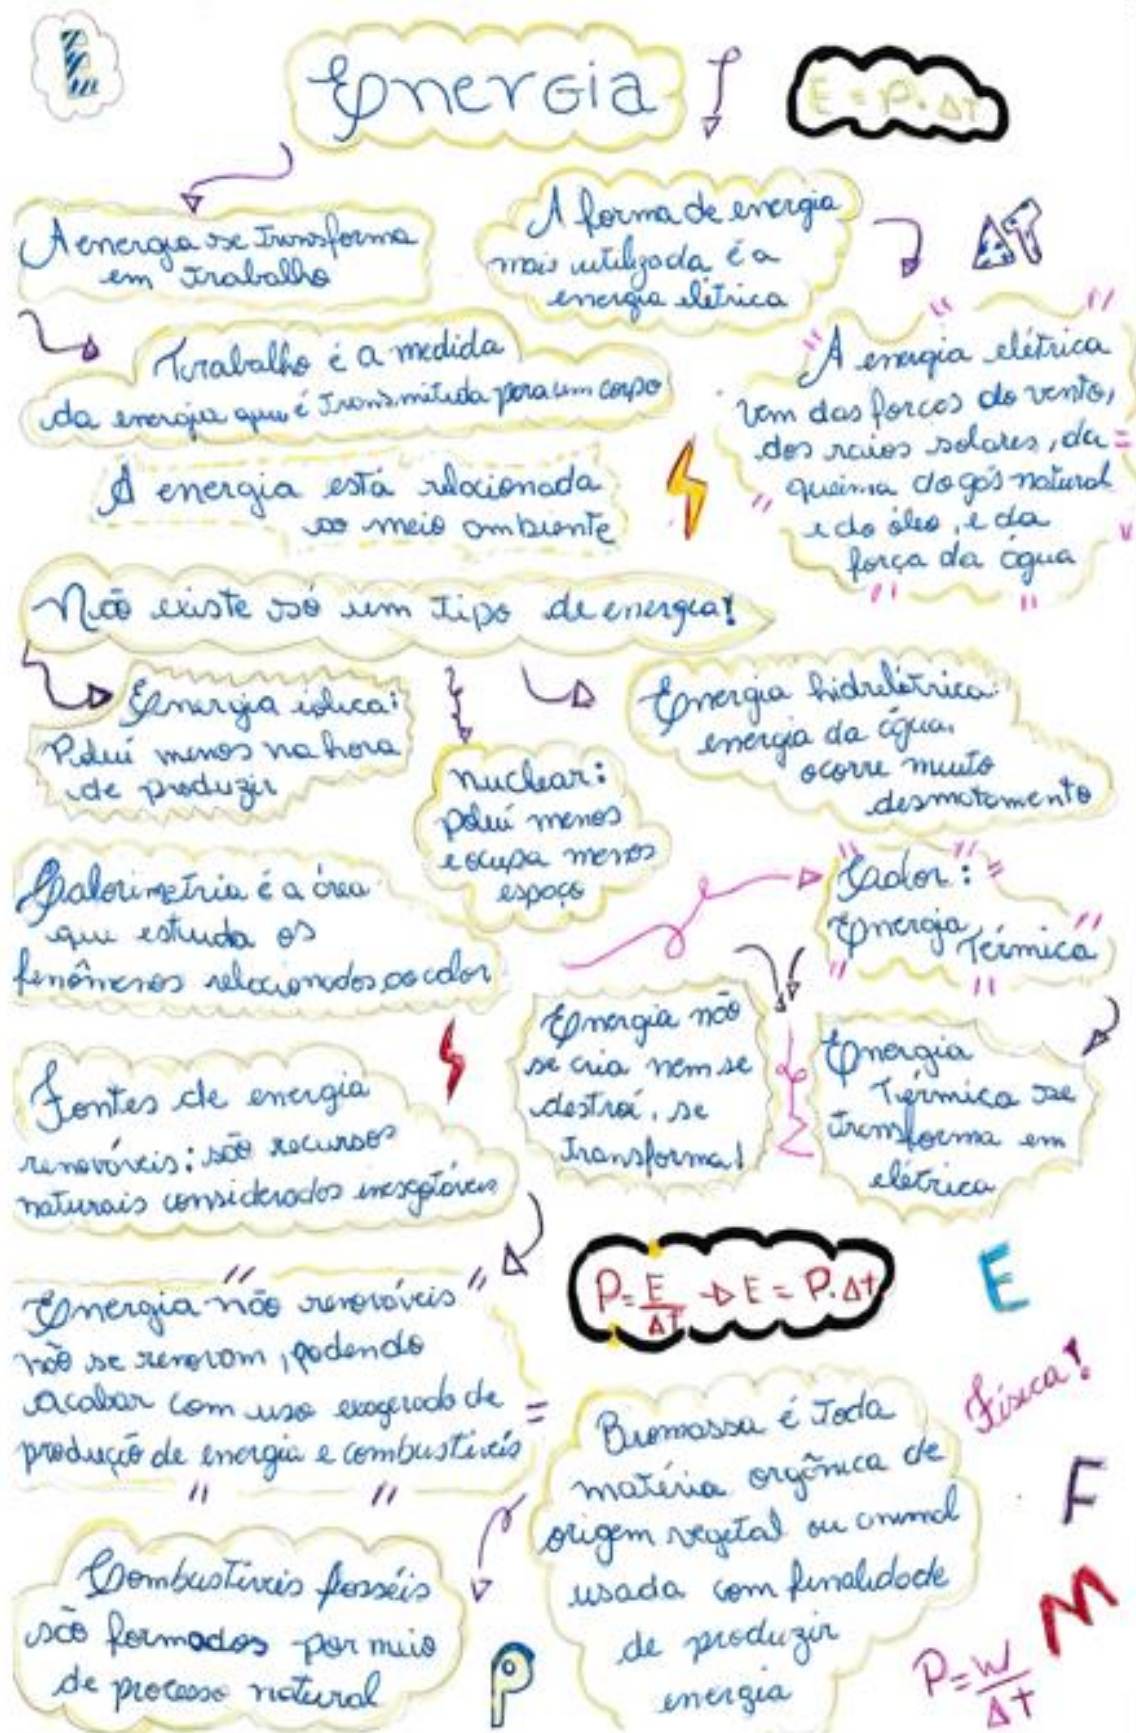 E
Energia
E = P. Δt
A energia se transforma
em trabalho
A forma de energia
mais utilizada é a
energia elétrica
ΔT
Trabalho é a medida
da energia que é transmitida para um corpo
A energia elétrica
vem das forças do vento,
dos raios solares, da
queima do gás natural
e do óleo, e da
força da água
A energia está relacionada
ao meio ambiente
Não existe só um tipo de energia!
Energia eólica:
Polui menos na hora
de produzir
nuclear:
polui menos
e ocupa menos
espaço
Energia hidrelétrica:
energia da água.
ocorre muito
desmatamento
Calorimetria é a área
que estuda os
fenômenos relacionados ao calor
Calor:
Energia
Térmica
Energia não
se cria nem se
destroí, se
transforma!
Energia
Térmica se
transforma em
elétrica
Fontes de energia
renováveis: são recursos
naturais considerados
P = E/ΔT → E = P. Δt
E
Energia não renováveis
não se renovam, podendo
acabar com uso exagerado de
produção de energia e combustíveis
Física!
Biomassa é toda
matéria orgânica de
origem vegetal ou animal
usada com finalidade
de produzir
energia
F
M
Combustíveis fosséis
são formados por meio
de processo natural
P
P = W/Δt